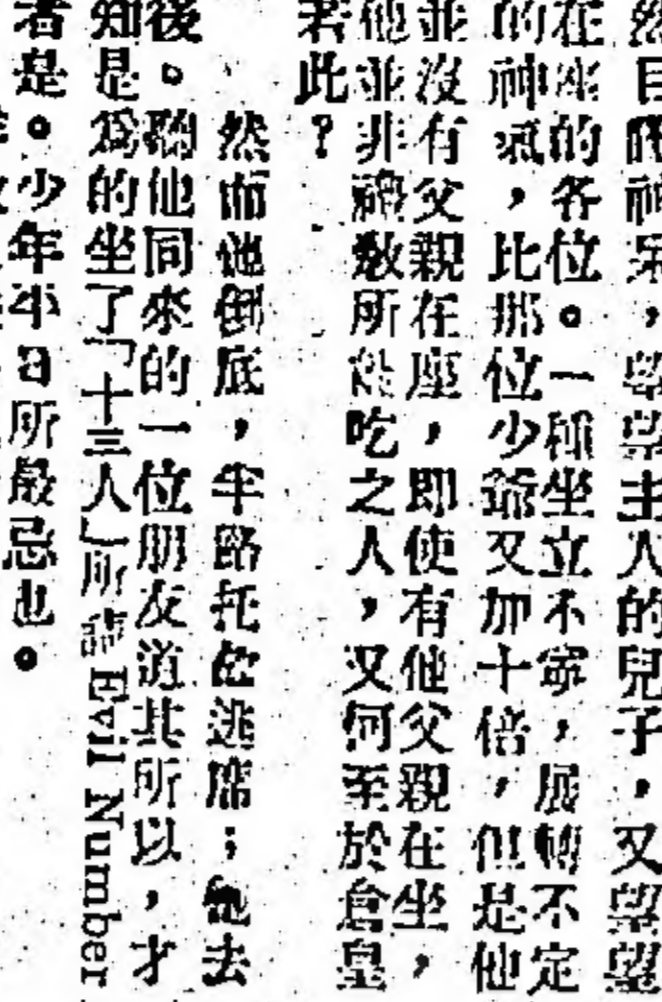 然目神呆，望望主人的兒子，又望望
在座的各位。一種坐立不寧，展轉不定
的神氣，比那位少爺又加十倍，但是他
並沒有父親在座，即使有他父親在坐，
他並非禮敎所能吃之人，又何至於倉皇
若此？
然而他倒底，半路托故逃席；他去
後。聽他同來的一位朋友道其所以，才
知是爲的坐了「十三人」所謂 Evil Number
者是。少年平日所最忌也。